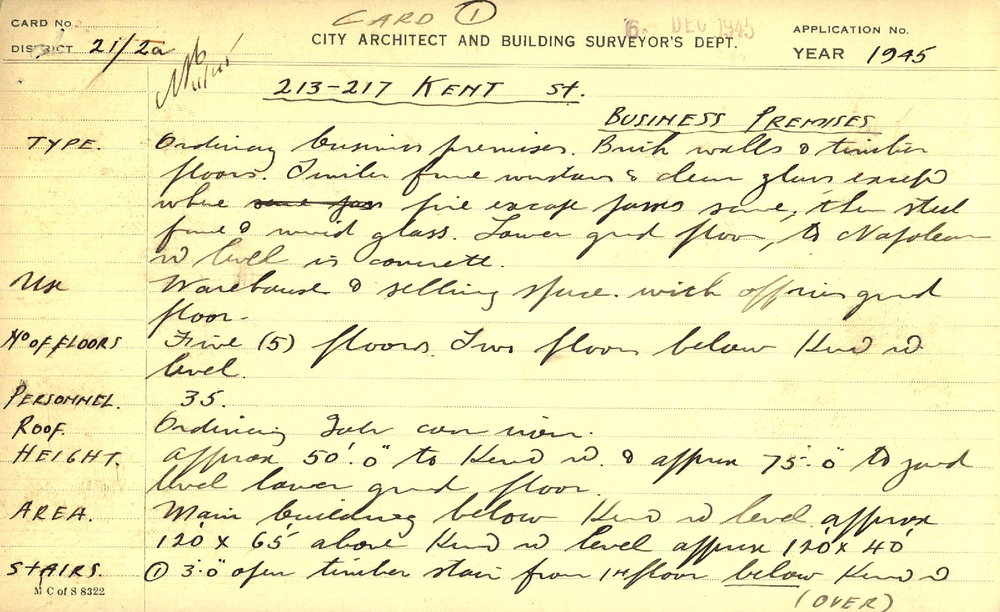 CARD No.
CARD 1
6 - DEC 1945
APPLICATION No.
DISTRICT 21/2a
CITY ARCHITECT AND BUILDING SURVEYOR'S DEPT.
YEAR 1945
213-217 KENT St.
BUSINESS PREMISES
TYPE. Ordinary business premises. Brick walls & timber
floors. Timber frame windows & clear glass except
where fire escape passes same, then steel
frame & wired glass. Lower grd floor, to Napoleon
level is concrete.
Use Warehouse & selling space. with offices grd
floor.
No OF FLOORS Five (5) floors. Two floors below Kent
level.
PERSONNEL. 35.
ROOF. Ordinary Galv corr iron.
HEIGHT. approx 50'.0" to Kent & approx 75'.0" to yard
level lower grd floor.
AREA. Main building below Kent level approx
120' x 65' above Kent level approx 120' x 40'
STAIRS. 1 3'.0" open timber stair from 1st floor below Kent
M C of S 8322
(OVER)